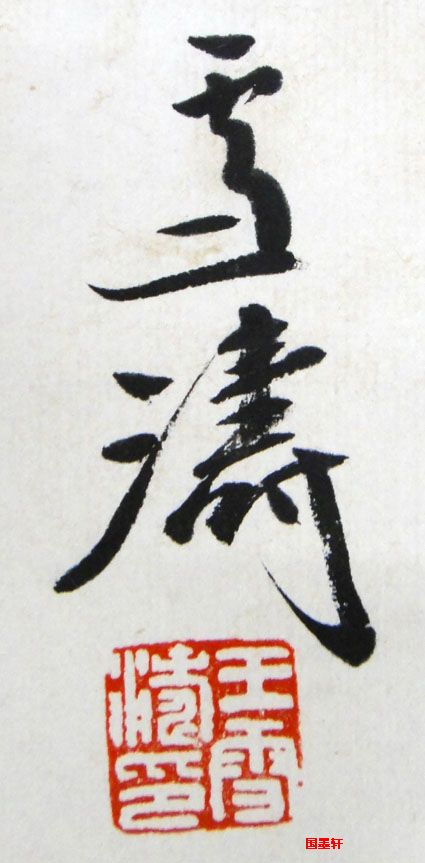 雪濤
王雪濤印
国墨轩